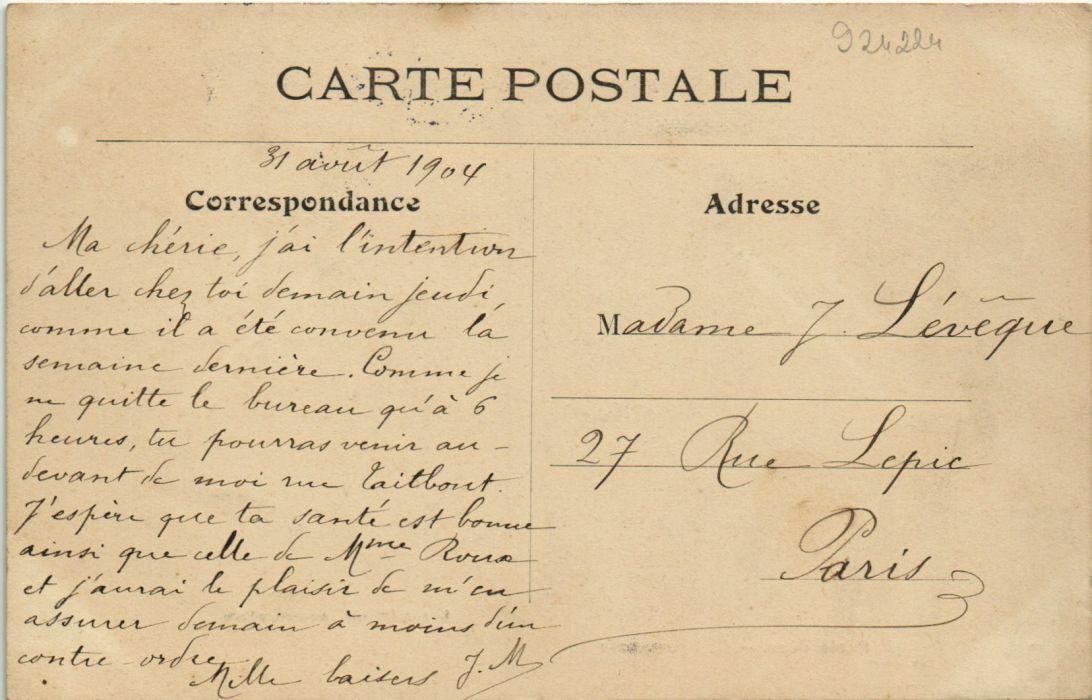 924224
CARTE POSTALE
31 août 1904
Correspondance
Ma chérie, j'ai l'intention
d'aller chez toi demain jeudi,
comme il a été convenu la
semaine dernière. Comme je
ne quitte le bureau qu'à 6
heures, tu pourras venir au-
devant de moi rue Taitbout.
J'espère que ta santé est bonne
ainsi que celle de Mme Roux
et j'aurai le plaisir de m'en
assurer demain à moins d'un
contre-ordre.
Mille baisers J. M
Adresse
Madame J. Lévêque
27 Rue Lepic
Paris